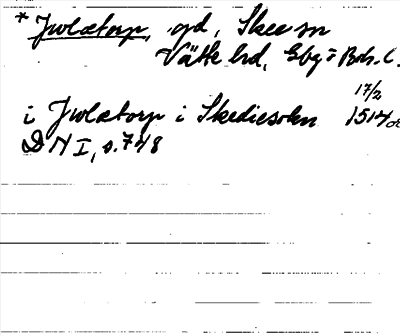 * Jwlætorp, gd, Skee sn
Vätte hd, Gbg o Boh. l.
17/2
i Jwlætorp i Skediesokn 1514
DN I, s. 748